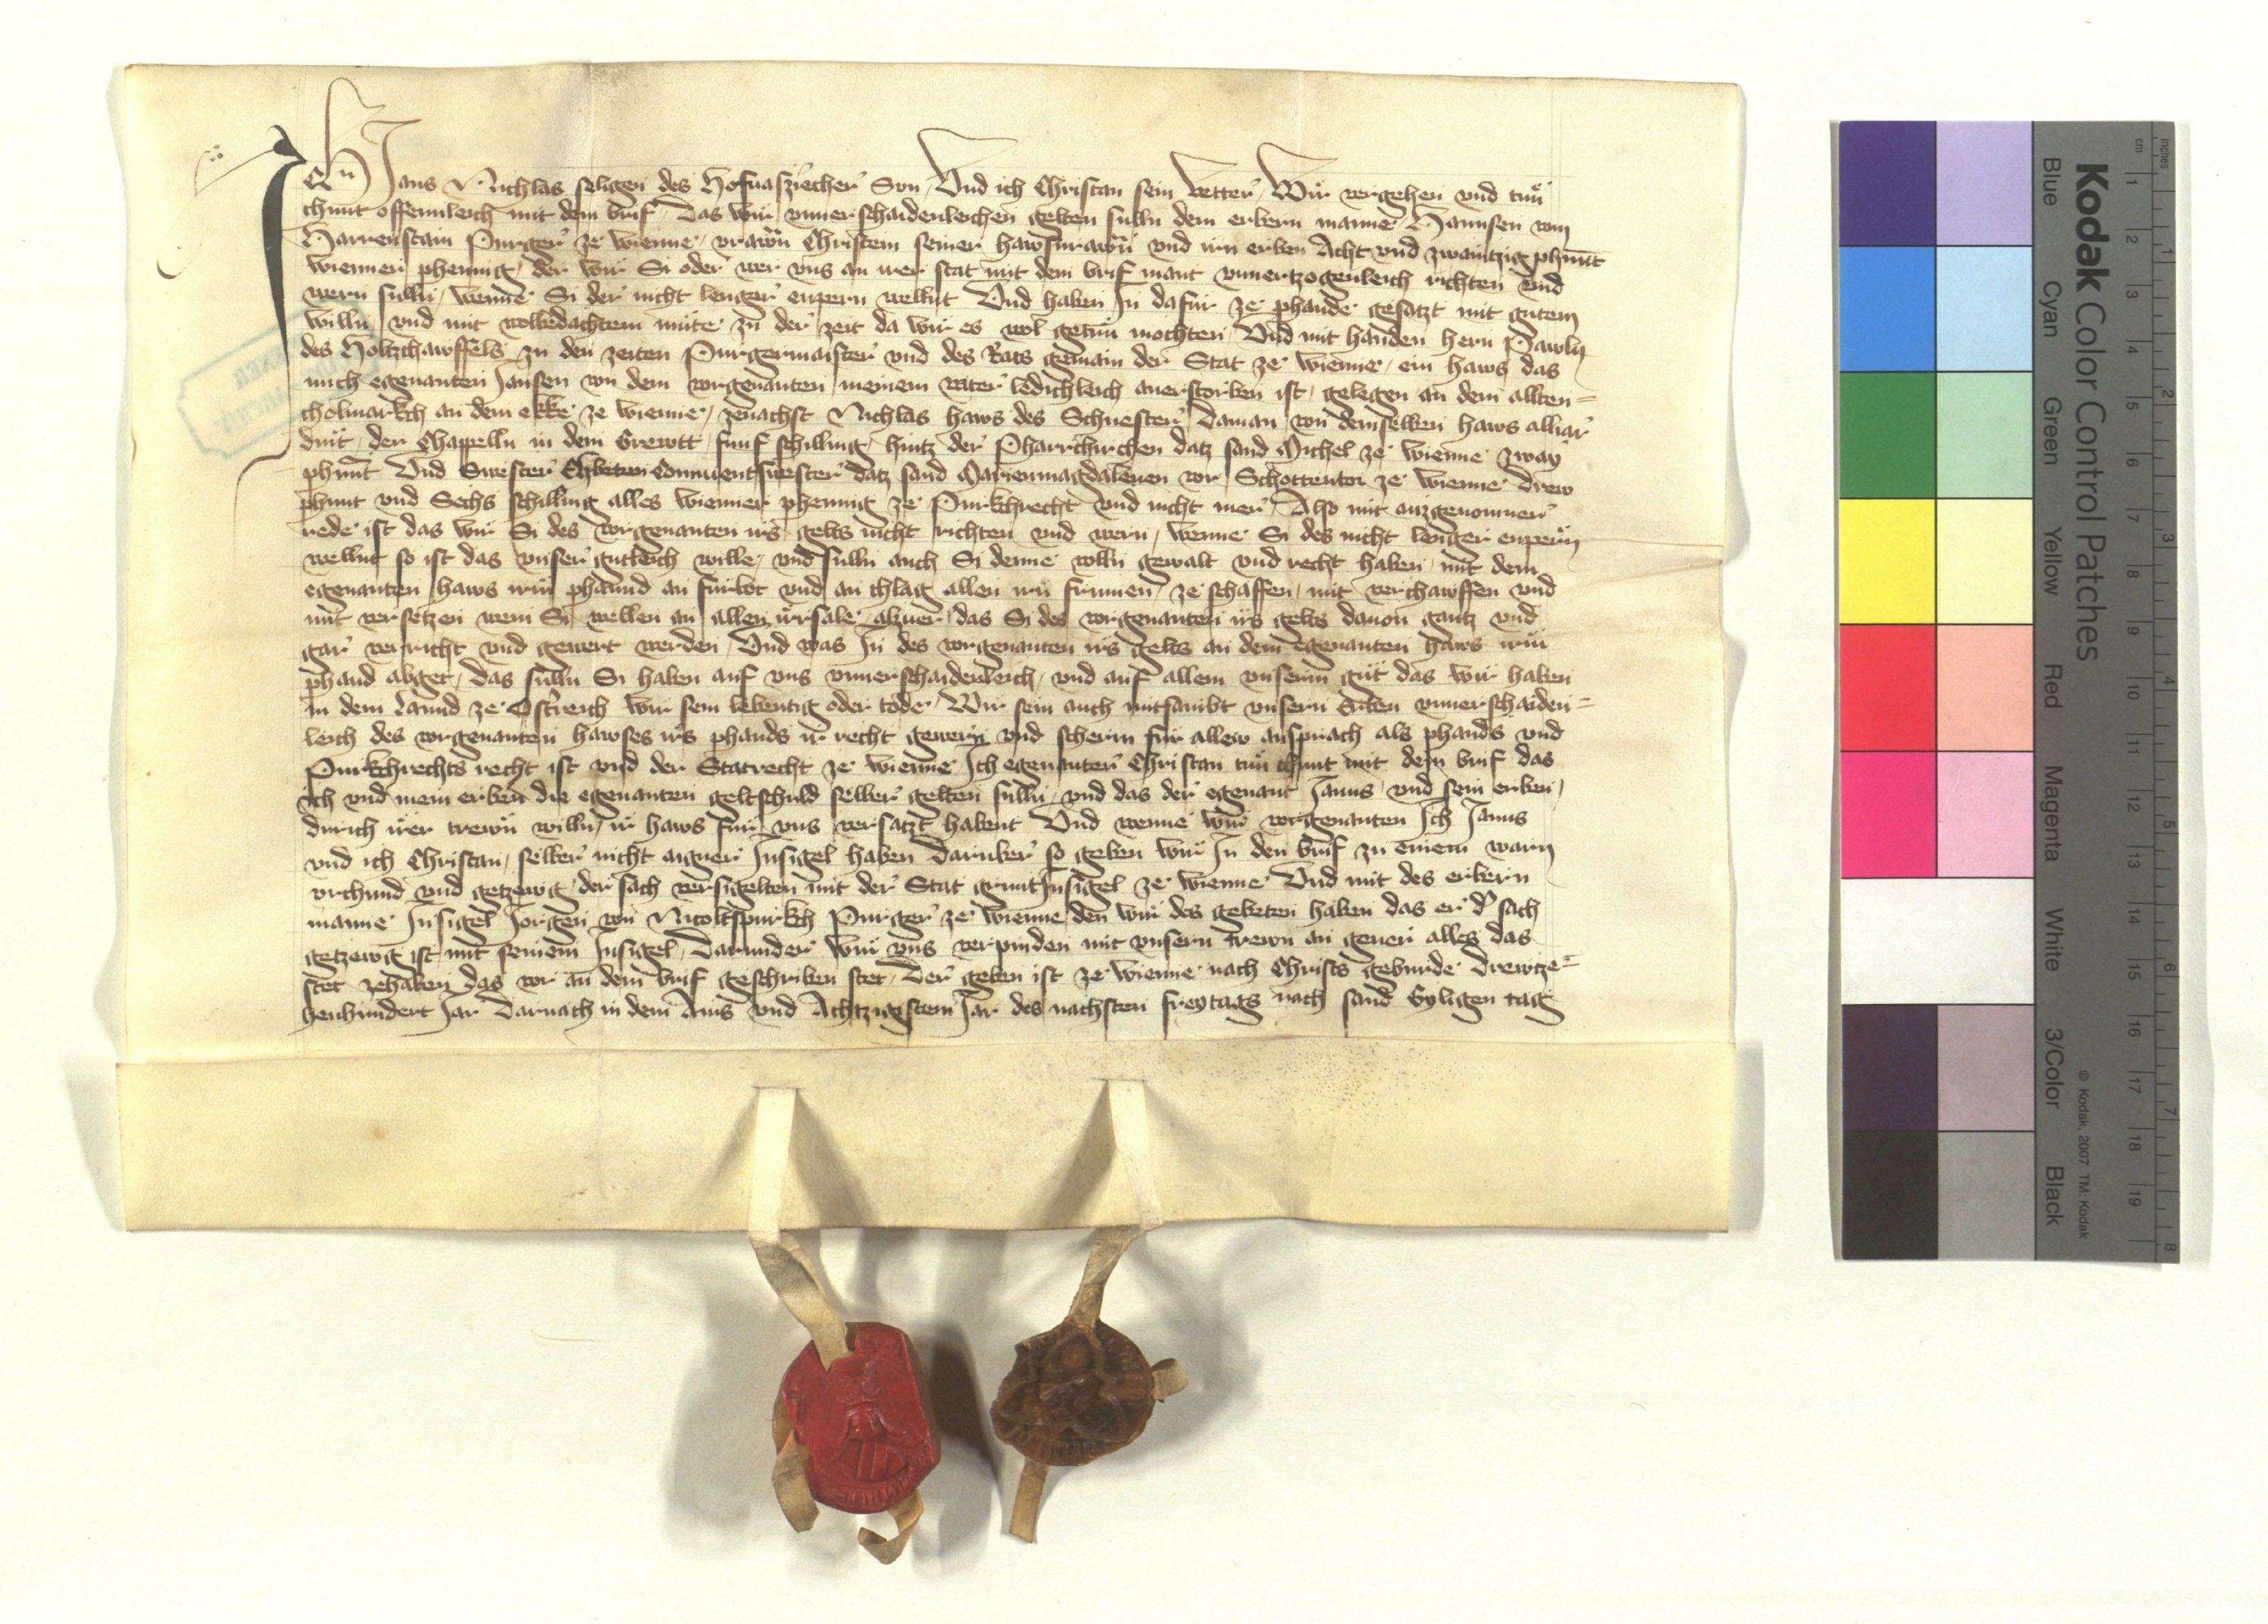 Ich Jans Nichlas seligen des Hofuasziecher Sun, Vnd ich Christan sein vetter, Wir vergehen vnd tun
chunt offennleich mit dem brif, Das wir vnuerschaidenleichen gelten sulln dem erbern manne Hannsen vom
Harrenstain Purger ze Wienne, vrawn Christein seiner hawsfrawn vnd irn erben Acht vnd zwaintzig phunt
wienner phennig, der wir Si oder wer vns an irer stat mit dem brif mant vnuertzogenleich richten vnd
wern sulln, wenne Si der nicht lenger enpern wellnt Vnd haben In dafur ze phande gesatzt mit gutem
willn vnd mit wolbedachtem mute zu der zeit da wir es wol getun mochten Vnd mit handen hern Pawln
des Holtzchawffels zu den zeiten Purgermaister vnd des Rats gemain der Stat ze Wienne, ein haws das
mich egenanten Jansen von dem vorgenanten meinem vater ledichleich anerstorben ist, gelegen an dem allten=
cholmarkch an dem ekke ze Wienne, zenachst Nichlas haws des Schuester, Daman von demselben haws alliar
dint, der Chappelln in dem Grewtt, funf schilling, hintz der Pharrchirchen datz sand Michel ze Wienne zway
phunt Vnd Swester Conuentswester datz sand Marienmagdalenen vor Schottentor ze Wienne drew
phunt vnd Sechs schilling alles wienner phennig ze Purkchrecht vnd nicht mer, Also mit auzgenomner
rede ist das wir Si des vorgenanten irs gelts nicht richten vnd wern, wenne Si des nicht lenger enpern
wellnt so ist das vnser gutleich wille, vnd sulln auch Si denne volln gewalt vnd recht haben, mit dem
egenanten haws irm phannd an furbot vnd an chlag allen irn frumen ze schaffen, mit verchawffen vnd
mit versetzen wem Si wellen an allen irrsale, alzuer, das Si des vorgenanten irs gelts dauon gantz vnd
gar verricht vnd gewert werden, Vnd was In des vorgenanten irs gelts an dem egenanten haws irm
phand abget, das sulln Si haben auf vns vnuerschaidenleich, vnd auf allem vnserm gut das wir haben
in dem Lannd ze Osterreich wir sein lebentig oder tode, Wir sein auch mitsambt vnsern Erben vnuerschaiden=
leich des vorgenanten hawses irs phands ir recht gewern vnd scherm fur allew ansprach als phands vnd
Purkchrechts recht ist vnd der Statrecht ze Wienne, Ich egenanter Christan tun chunt mit dem brif das
ich vnd mein erben die egenanten geltschuld selber gelten sulln, vnd das der egenant Janns, vnd sein erben,
durich irer trewn willn, ir haws fur vns versatzt habent Vnd wenne wir vorgenanten Ich Janns
vnd ich Christan, selber nicht aigner Insigel haben Daruber so geben wir In den brif zu einem warn
vrchund vnd getzewg, der sach versigelten mit der Stat gruntInsigel ze Wienne Vnd mit des erbern
manne Insigel Jorgen von Nicolspurkch Purger ze Wienne, den wir des gebeten haben das er der sach
getzewg ist mit seinem Insigel, Darunder wir vns verpinden mit vnsern trewn an geuer alles das
stet zehaben das vor an dem brif geschriben stet, Der geben ist ze Wienne nach Christs geburde Drewtze=
henhundert Jar Darnach in dem Ains vnd Achtzigstem Jar des nachsten freytags nach sand Gyligen tag
Kodak Color Control Patches
Blue Cyan Green Yellow Red Magenta White 3/Color Black
© Kodak, 2007 TM: Kodak
cm 1 2 3 4 5 6 7 8 9 10 11 12 13 14 15 16 17 18 19
inches 1 2 3 4 5 6 7 8